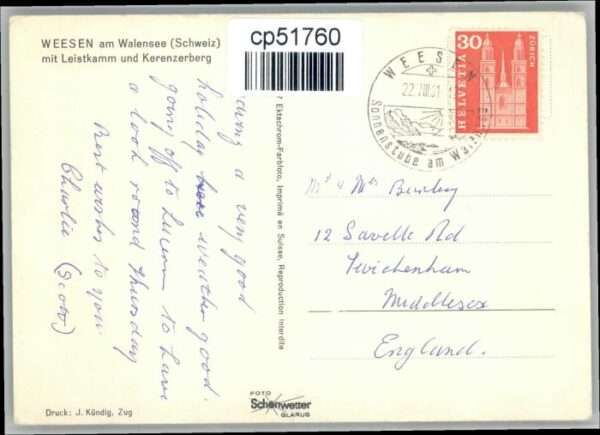 WEESEN am Walensee (Schweiz)
mit Leistkamm und Kerenzerberg
cp51760
a very good
holiday weather good.
going off to Lucern to have
a look round Thursday
Best wishes to you
Charlie (Scots)
r Ektachrom-Farbfoto, Imprimé en Suisse, Reproduction interdite
WEESEN
22.VIII.61
Sonnenstube am Wal
30
ZÜRICH
HELVETIA
Mr & Mrs
12 Saville Rd
Twickenham
Middlesex
England.
FOTO
Schönwetter
GLARUS
Druck: J. Kündig, Zug